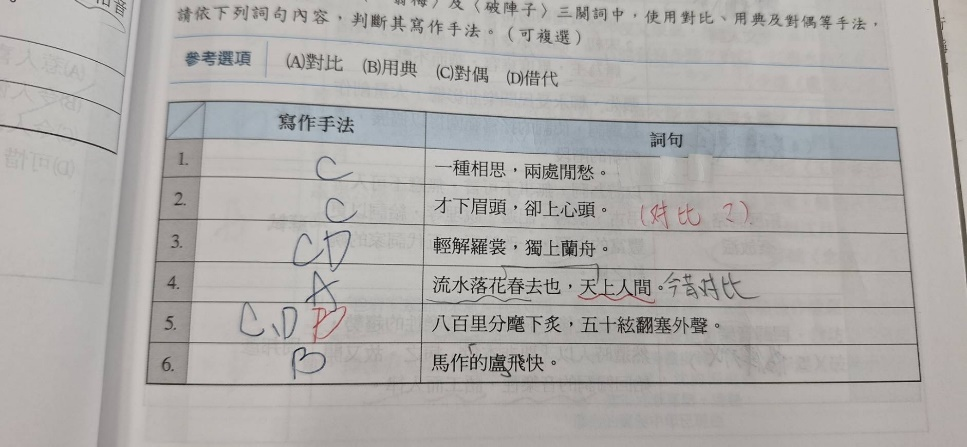 翦梅〉及〈破陣子〉三闋詞中，使用對比、用典及對偶等手法，
請依下列詞句內容，判斷其寫作手法。（可複選）
參考選項 (A)對比 (B)用典 (C)對偶 (D)借代
寫作手法 詞句
1. C 一種相思，兩處閒愁。
2. C 才下眉頭，卻上心頭。 (对比？)
3. CD 輕解羅裳，獨上蘭舟。
4. A 流水落花春去也，天上人間。今昔对比
5. C、D B 八百里分麾下炙，五十絃翻塞外聲。
6. B 馬作的盧飛快。